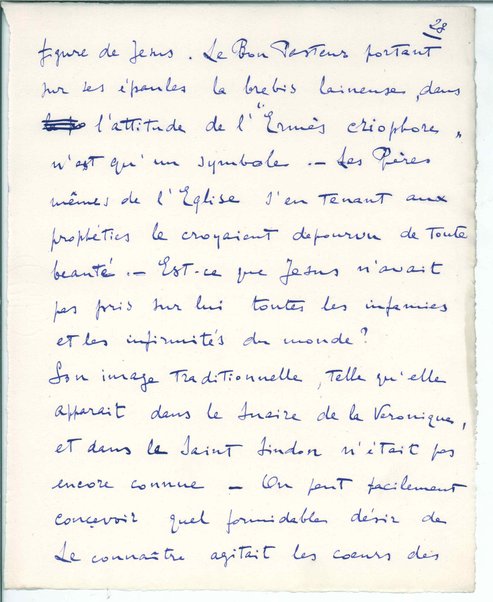 28
figure de Jesus. Le Bon Pasteur portant
sur ses épaules la brebis laineuse, dans
l'attitude de l'"Ermès criophore"
n'est qu'un symbole. — Les Pères
mêmes de l'Eglise s'en tenant aux
prophéties le croyaient depourvu de toute
beauté. — Est-ce que Jesus n'avait
pas pris sur lui toutes les infamies
et les infirmités du monde?
Son image traditionnelle, telle qu'elle
apparait dans le Suaire de la Veronique,
et dans le Saint Sindon n'était pas
encore connue — On peut facilement
concevoir quel formidable désir de
Le connaître agitait les coeurs des